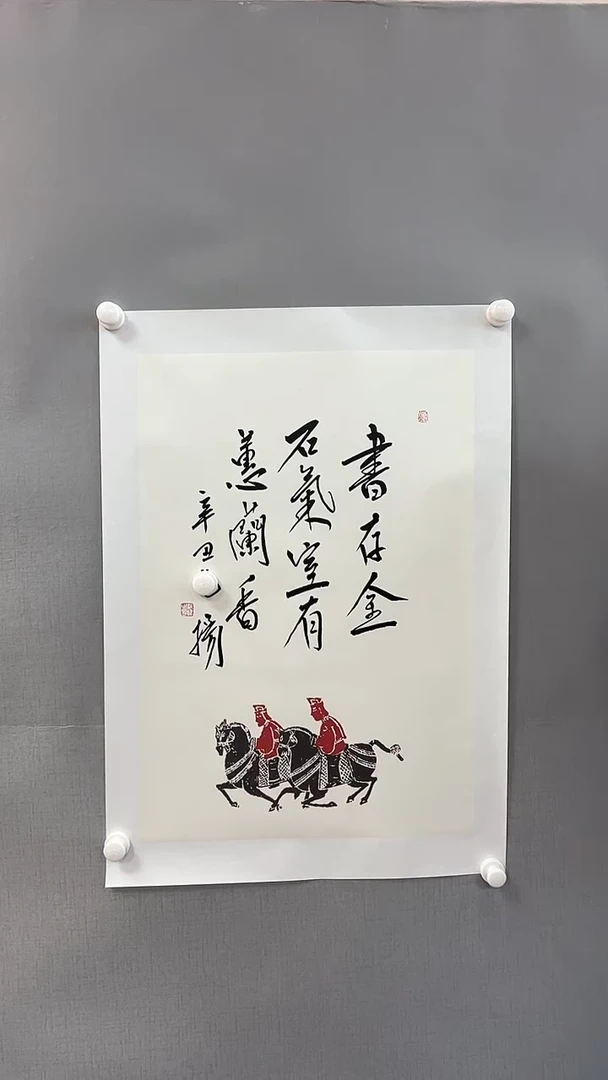 書存金
石氣室有
蕙蘭香
辛丑